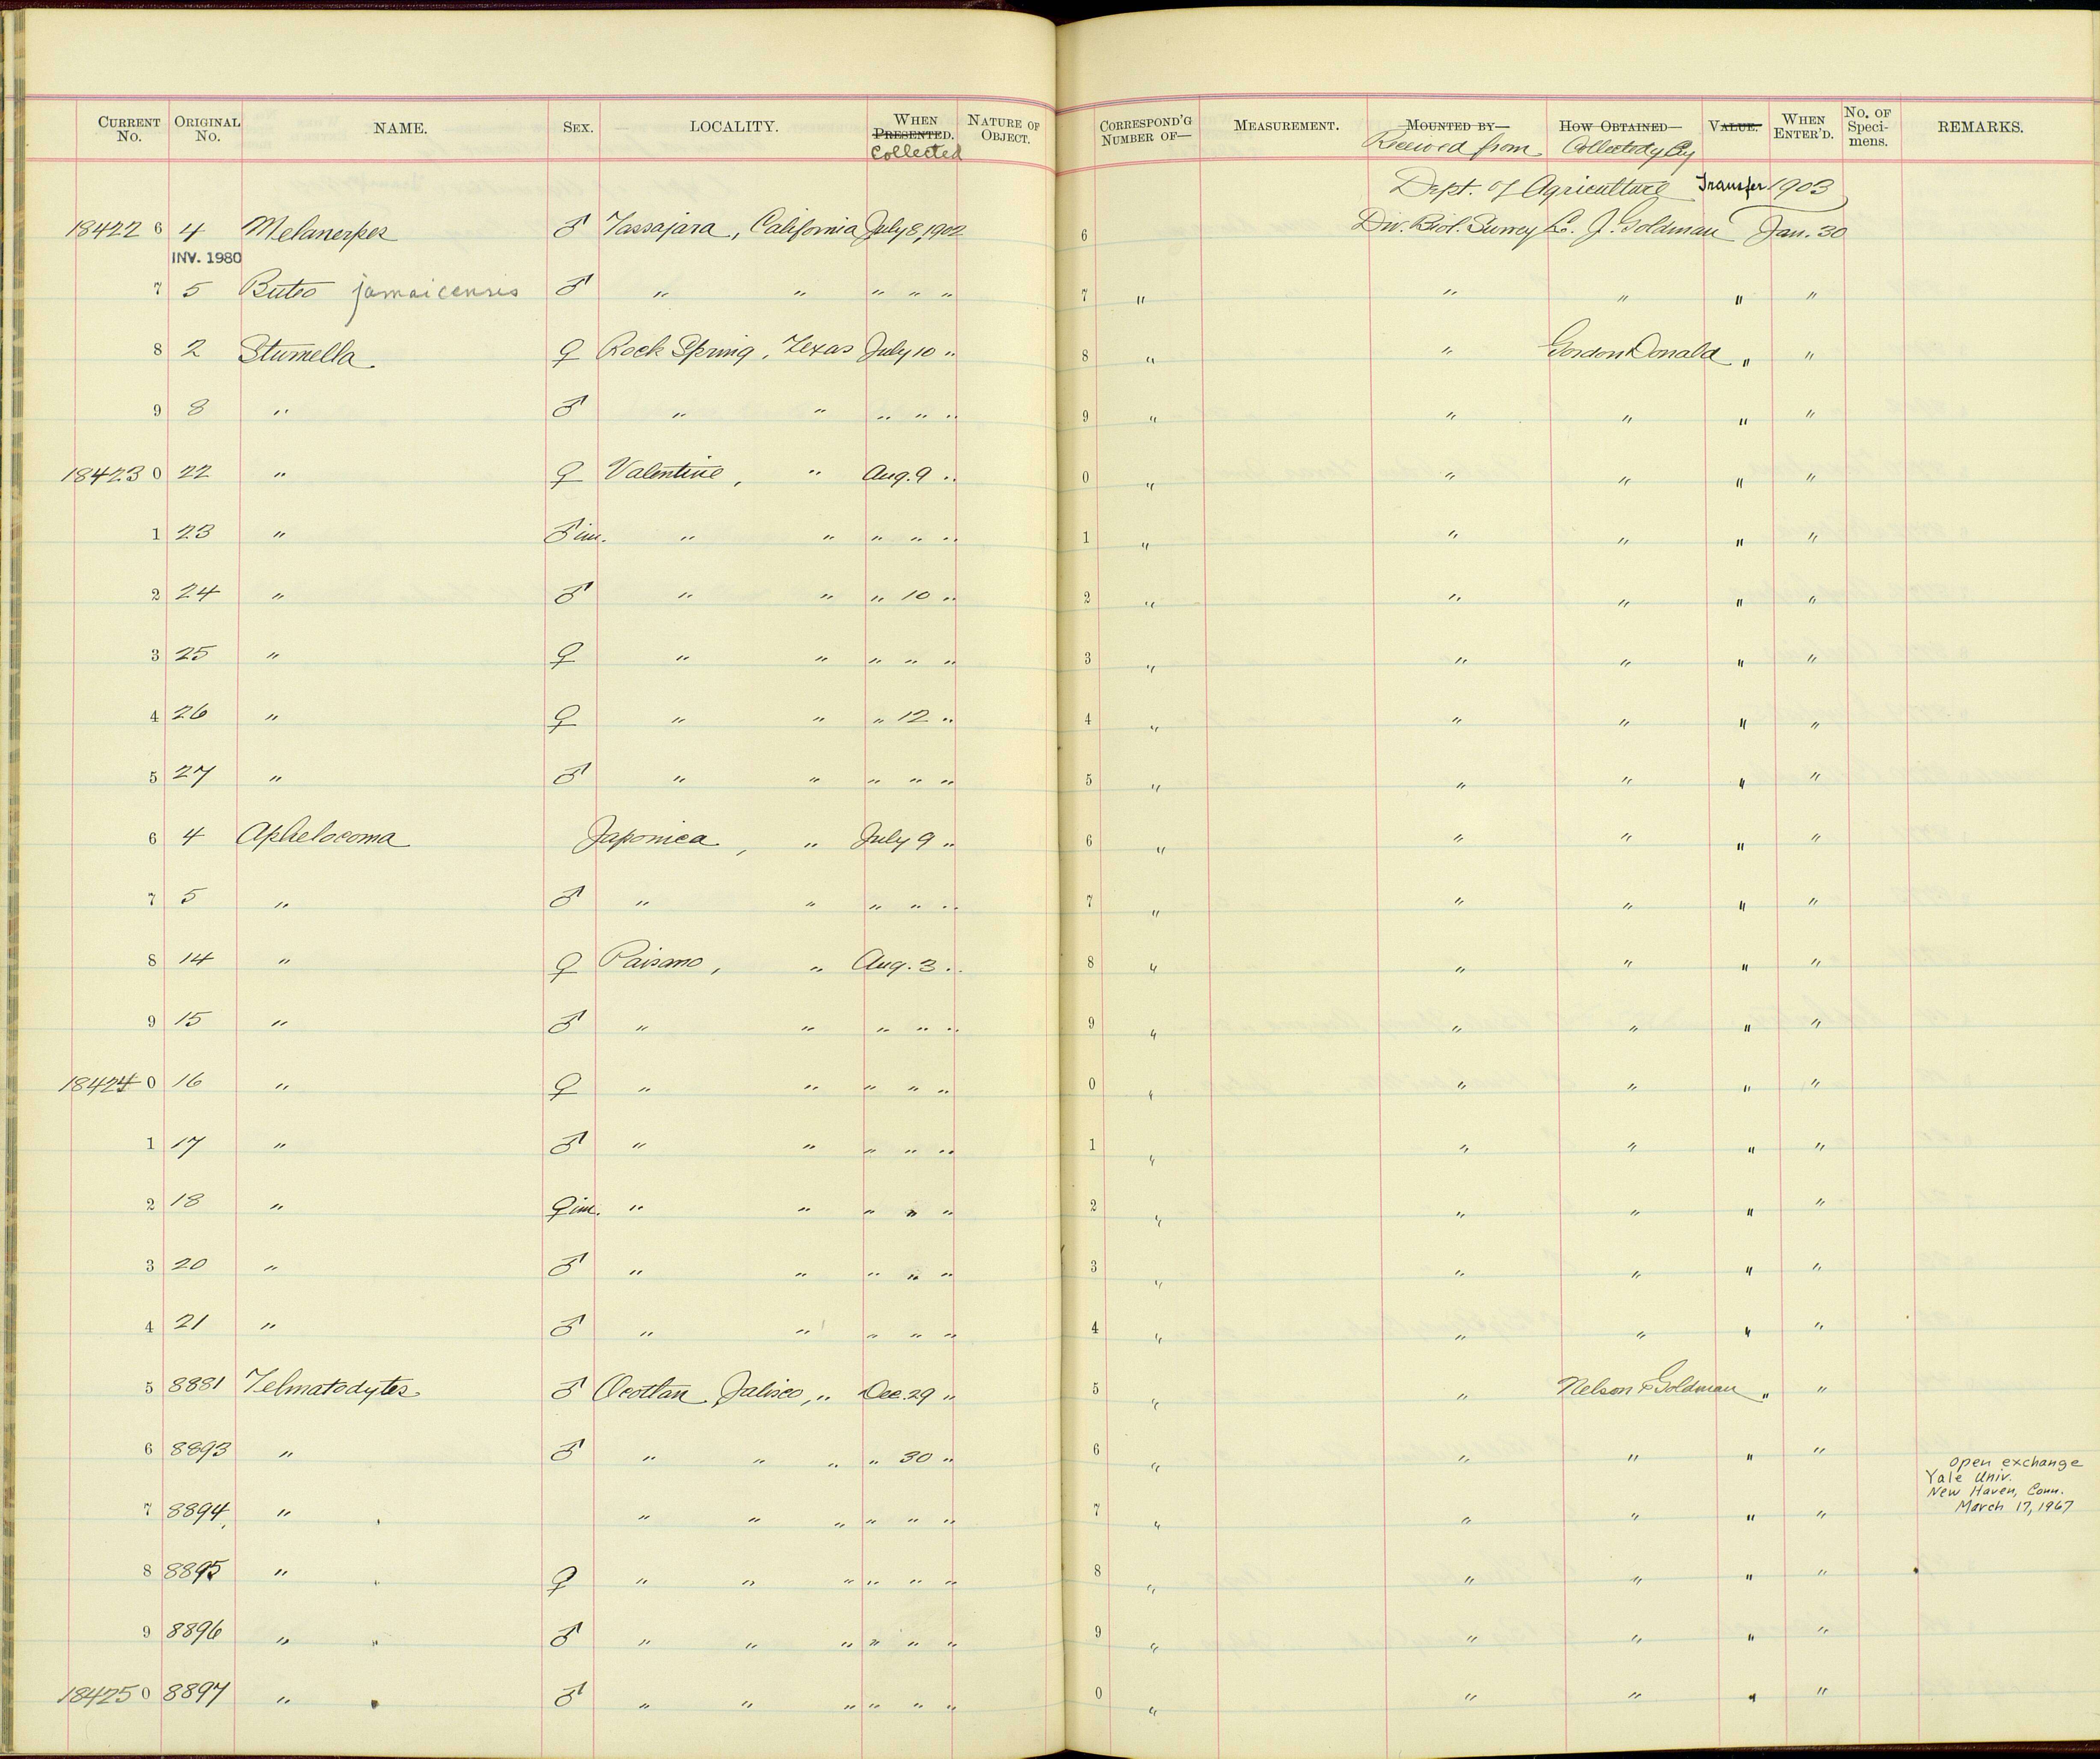 CURRENT No. ORIGINAL No. NAME. SEX. LOCALITY. WHEN PRESENTED. Collected NATURE OF OBJECT. CORRESPOND'G NUMBER OF— MEASUREMENT. MOUNTED BY— Received from HOW OBTAINED— Collected by VALUE. WHEN ENTER'D. No. OF Speci-mens. REMARKS.
Dept. of Agriculture Transfer 1903
18422 6 4 Melanerpes ♂ Tassajara, California July 8, 1902 6 Div. Biol. Survey J. Goldman Jan. 30
INV. 1980
7 5 Buteo jamaicensis ♂ " " " " " 7 " " " " "
8 2 Sturnella ♀ Rock Spring, Texas July 10 " 8 " " Gordon Donald " "
9 8 " ♂ " " " " " 9 " " " " "
18423 0 22 " ♀ Valentine, " Aug. 9 " 0 " " " " "
1 23 " ♂ im. " " " " " 1 " " " " "
2 24 " ♂ " " " 10 " 2 " " " " "
3 25 " ♀ " " " " " 3 " " " " "
4 26 " ♀ " " " 12 " 4 " " " " "
5 27 " ♂ " " " " " 5 " " " " "
6 4 Aphelocoma Japonica, " July 9 " 6 " " " " "
7 5 " ♂ " " " " " 7 " " " " "
8 14 " ♀ Paisano, " Aug. 3 " 8 " " " " "
9 15 " ♂ " " " " " 9 " " " " "
18424 0 16 " ♀ " " " " " 0 " " " " "
1 17 " ♂ " " " " " 1 " " " " "
2 18 " ♀ im. " " " " " 2 " " " " "
3 20 " ♂ " " " " " 3 " " " " "
4 21 " ♂ " " " " " 4 " " " " "
5 8881 Telmatodytes ♂ Ocotlan Jalisco, " Dec. 29 " 5 " " Nelson & Goldman " "
6 8893 " ♂ " " " " 30 " 6 " " " " "
open exchange
Yale Univ.
New Haven, Conn.
March 17, 1967
7 8894 " " " " " " " 7 " " " " "
8 8895 " ♀ " " " " " " 8 " " " " "
9 8896 " ♂ " " " " " " 9 " " " " "
18425 0 8897 " ♂ " " " " " " 0 " " " " "